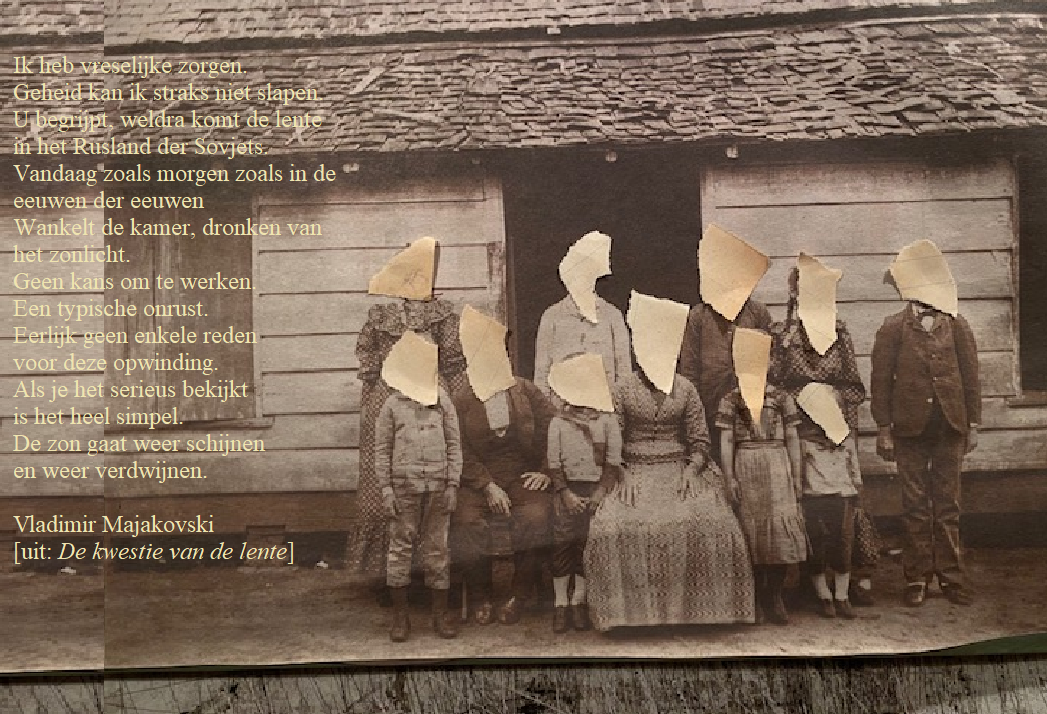 Ik heb vreselijke zorgen.
Geheid kan ik straks niet slapen.
U begrijpt, weldra komt de lente
in het Rusland der Sovjets.
Vandaag zoals morgen zoals in de
eeuwen der eeuwen
Wankelt de kamer, dronken van
het zonlicht.
Geen kans om te werken.
Een typische onrust.
Eerlijk geen enkele reden
voor deze opwinding.
Als je het serieus bekijkt
is het heel simpel.
De zon gaat weer schijnen
en weer verdwijnen.
Vladimir Majakovski
[uit: De kwestie van de lente]